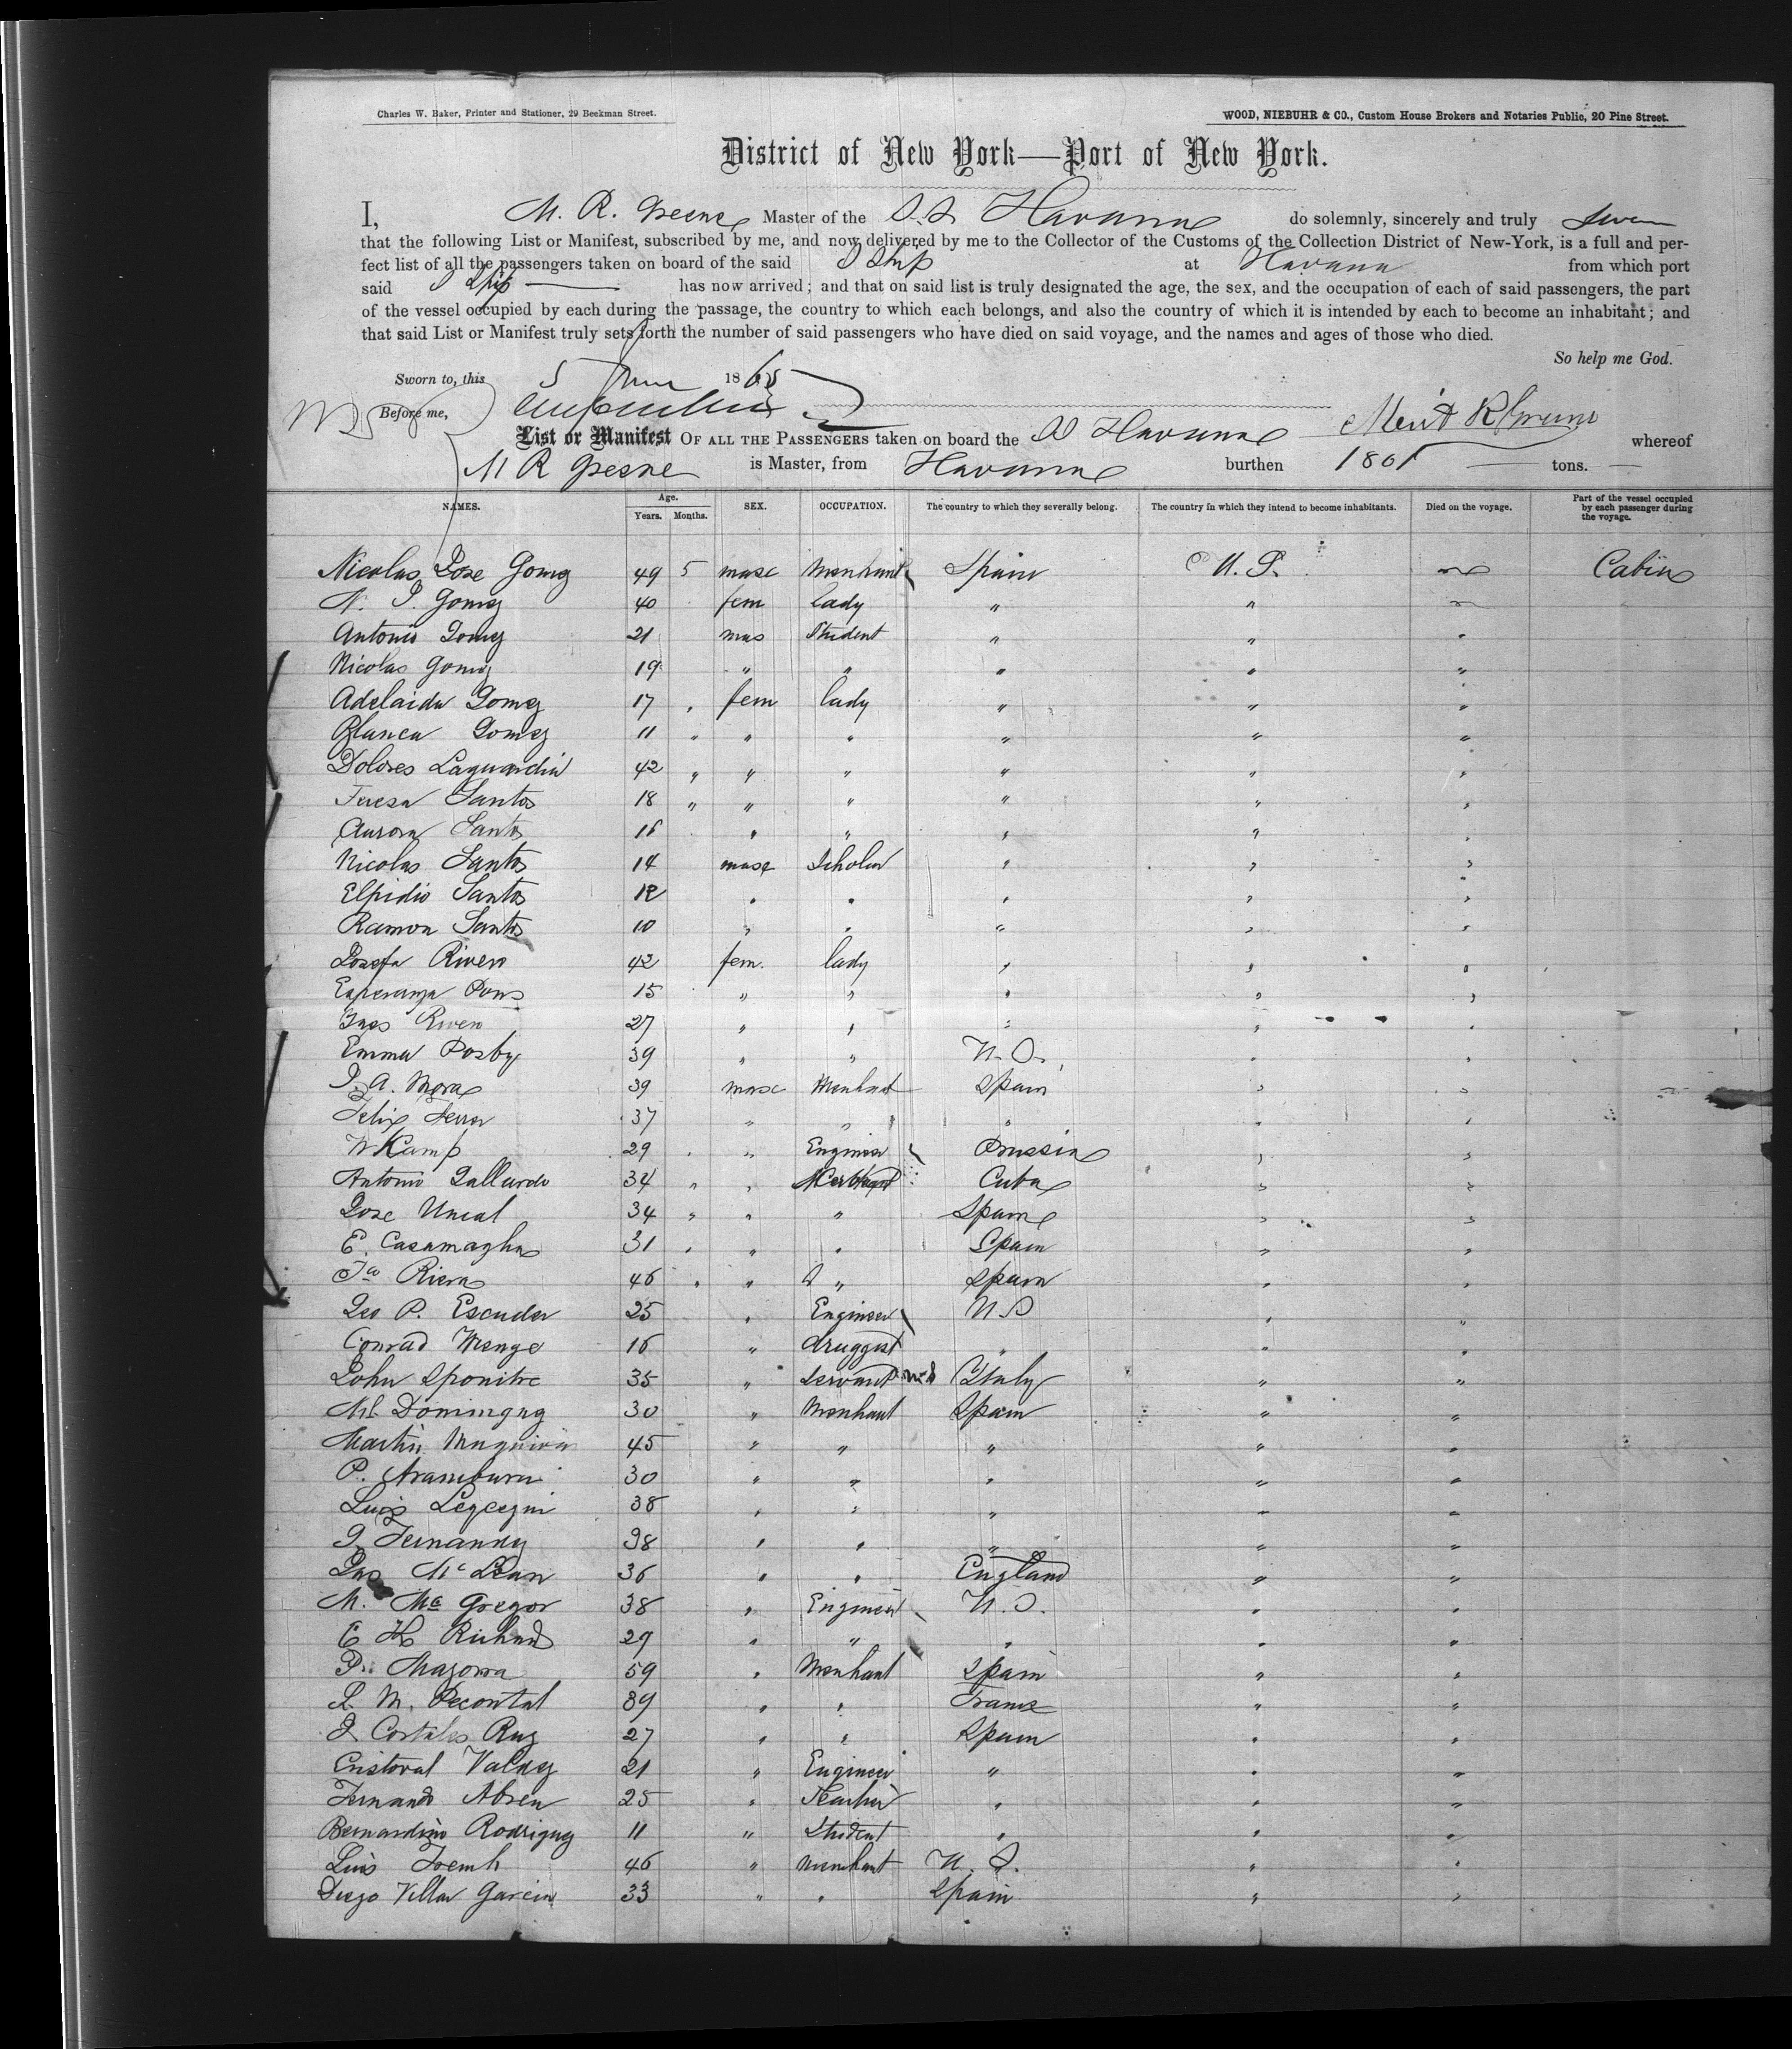 Charles W. Baker, Printer and Stationer, 29 Beekman Street.
WOOD, NIEBUHR & CO., Custom House Brokers and Notaries Public, 20 Pine Street.
District of New York—Port of New York.
I, M. R. Greene Master of the S.S. Havana do solemnly, sincerely and truly swear
that the following List or Manifest, subscribed by me, and now delivered by me to the Collector of the Customs of the Collection District of New-York, is a full and per-
fect list of all the passengers taken on board of the said S Ship at Havana from which port
said S Ship has now arrived; and that on said list is truly designated the age, the sex, and the occupation of each of said passengers, the part
of the vessel occupied by each during the passage, the country to which each belongs, and also the country of which it is intended by each to become an inhabitant; and
that said List or Manifest truly sets forth the number of said passengers who have died on said voyage, and the names and ages of those who died.
So help me God.
Sworn to, this 5 June 18
Before me,
List or Manifest OF ALL THE PASSENGERS taken on board the SS Havana whereof
M R Greene is Master, from Havana burthen 1801 tons.
NAMES. Age. Years. Months. SEX. OCCUPATION. The country to which they severally belong. The country in which they intend to become inhabitants. Died on the voyage. Part of the vessel occupied by each passenger during the voyage.
Nicolas Jose Gomez 49 5 masc Merchant Spain U.S. Cabin
N. J. Gomez 40 fem lady " "
Antonio Gomez 21 mas Student " " "
Nicolas Gomez 19 " " " " "
Adelaida Gomez 17 " fem lady " " "
Blanca Gomez 11 " " " " " "
Dolores Laguardia 42 " " " " " "
Teresa Santos 18 " " " " " "
Aurora Santos 16 " " " " "
Nicolas Santos 14 masc Scholar " " "
Elpidio Santos 12 " " " " "
Ramon Santos 10 " " " " "
Josefa Rivero 42 fem. lady " " "
Esperanza Pons 15 " " " " "
Ines Rivero 27 " " " " "
Emma Posby 39 " " U.S. " "
J. A. Mora 39 masc Merchant Spain " "
Felix Ferrer 37 " " " " "
W Kamp 29 " " Engineer Prussia " "
Antonio Gallardo 34 " " Merchant Cuba " "
Jose 34 " " " Spain " "
E. 31 " " " Spain " "
Riera 46 " " " Spain " "
Geo P. Escuder 25 " Engineer U.S " "
Conrad Menge 16 " druggist " " "
John 35 " Servant Italy " "
Ml. Dominguez 30 " Merchant Spain " "
Martin 45 " " " " "
P. Aramburu 30 " " " " "
Luis 38 " " " " "
J. Fernandez 38 " " " " "
Jas McLean 36 " " England " "
M. Mc Gregor 38 " Engineer U.S. " "
E H Richard 29 " " " " "
P. Mazorra 59 " Merchant Spain " "
39 " " France " "
27 " " Spain " "
Cristoval Valdez 21 " Engineer " " "
Fernando Abreu 25 " Teacher " " "
Bernardino Rodriguez 11 " Student " " "
Luis 46 " Merchant U.S. " "
Diego Villar Garcia 33 " " Spain " "